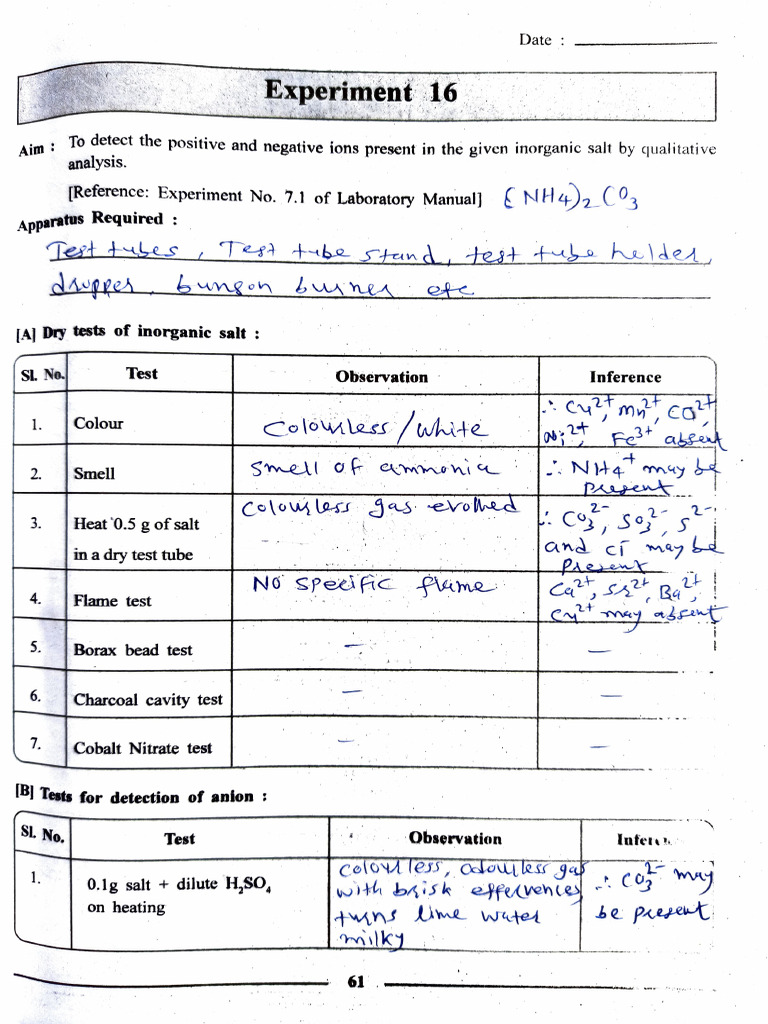 Date :
Experiment 16
Aim : To detect the positive and negative ions present in the given inorganic salt by qualitative
analysis.
[Reference: Experiment No. 7.1 of Laboratory Manual] (NH4)2 CO3
Apparatus Required :
Test tubes, Test tube stand, test tube helder,
drupper, bungon burner etc
[A] Dry tests of inorganic salt :
Sl. No. Test Observation Inference
1. Colour Colourless/white ∴ Cu2+, Mn2+, CO2+,
Ni2+, Fe3+ absent
2. Smell smell of ammonia ∴ NH4+ may be
present
3. Heat 0.5 g of salt colourless gas evolved ∴ CO3 2-, SO3 2-, S2-
in a dry test tube and Cl- may be
present
4. Flame test No specific flame Ca2+, Sr2+, Ba2+,
Cu2+ may absent
5. Borax bead test — —
6. Charcoal cavity test — —
7. Cobalt Nitrate test — —
[B] Tests for detection of anion :
Sl. No. Test Observation
1. 0.1g salt + dilute H2SO4 colourless, odourless gas ∴ CO3 2- may
on heating with brisk effervences be present
turns lime water
milky
61